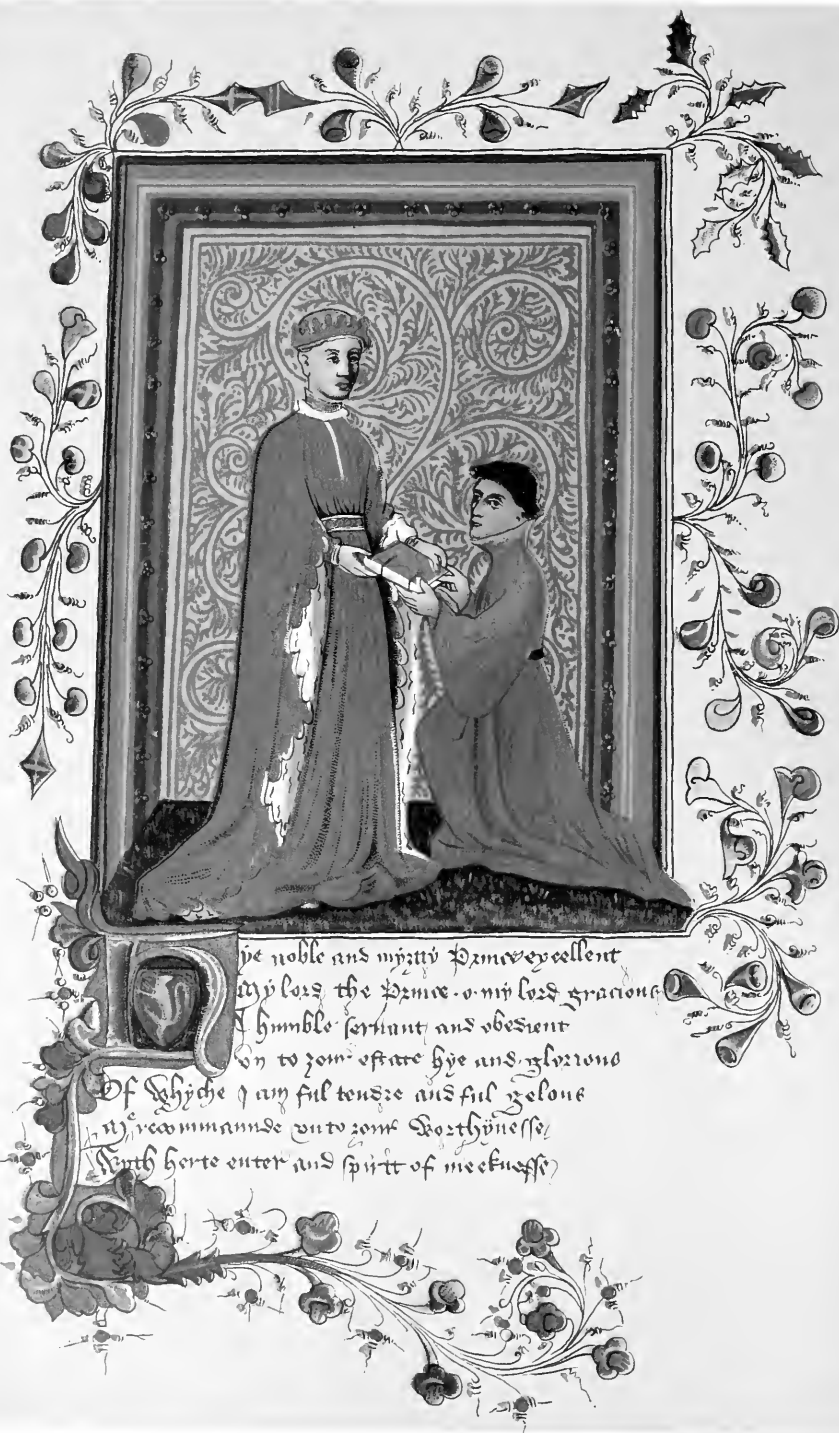 Hye noble and myȝtty Prince excellent
My lord the Prince . o . my lord gracious
I humble seruant and obedient
Vn to ȝour estate hye and glorious
Of Whyche I am ful tendre and ful gelous
Me recommaunde vnto ȝour Worthynesse
Wyth herte enter and spirit of meeknesse